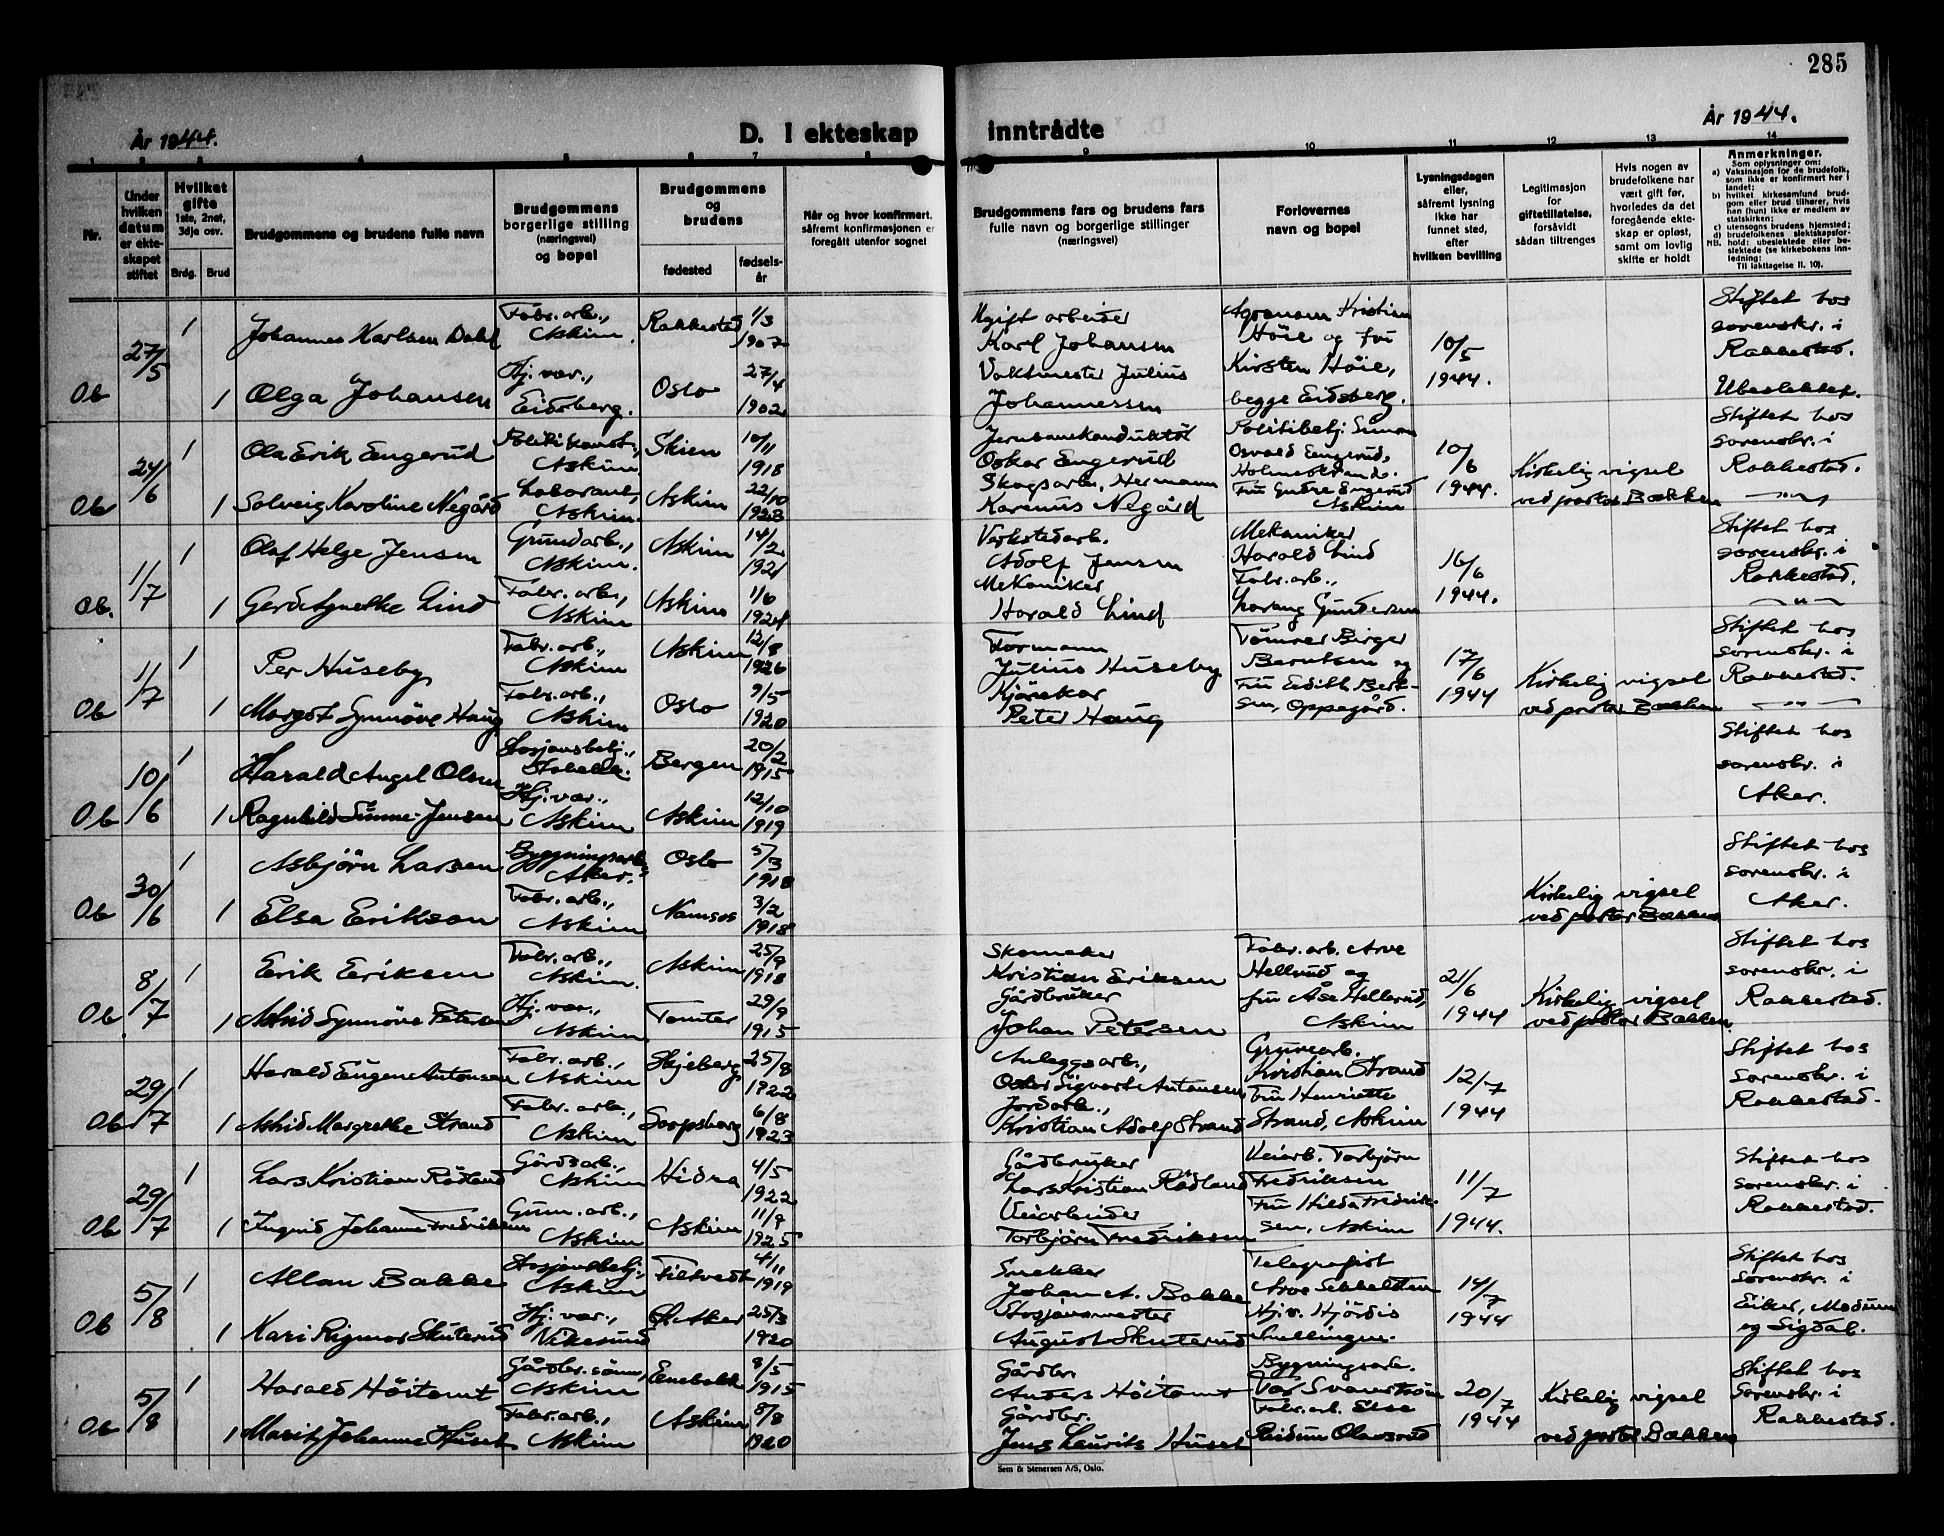 285
År 1944.
D. I ekteskap inntrådte
År 1944.
1 2 3 4 5 6 7 8 9 10 11 12 13 14
Nr.
Under hvilken datum er ekteskapet stiftet
Hvilket gifte
1ste, 2net, 3dje osv.
Brdg. Brud
Brudgommens og brudens fulle navn
Brudgommens borgerlige stilling (næringsvei) og bopel
Brudgommens og brudens
fødested
fødselsår
Når og hvor konfirmert, såfremt konfirmasjonen er foregått utenfor sognet
Brudgommens fars og brudens fars fulle navn og borgerlige stillinger (næringsvei)
Forlovernes navn og bopel
Lysningsdagen eller, såfremt lysning ikke har funnet sted, efter hvilken bevilling
Legitimasjon for giftetillatelse, forsåvidt sådan tiltrenges
Hvis nogen av brudefolkene har vært gift før, hvorledes da det foregående ekteskap er opløst, samt om lovlig skifte er holdt
Anmerkninger.
Som oplysninger om:
a) Vaksinasjon for de brudefolk, som ikke er konfirmert her i landet;
b) hvilket kirkesamfund brudgom eller brud tilhører, hvis han (hun) ikke er medlem av statskirken;
c) utensogns brudens hjemsted;
d) brudefolkenes slektskapsforhold: ubeslektede eller beslektede (se kirkebokens innledning:
NB.
Til iakttagelse II. 10).
Ob 27/5 1 Johannes Karlsen Dahl Fabr. arb., Askim. Rakkestad 1/3 1907 Ugift arbeider Karl Johansen Agronom Kristian Höie og fru Kirsten Höie, begge Eidsberg. 10/5 1944. Stiftet hos sorenskr. i Rakkestad. Ubeslektet.
1 Olga Johansen Hj. vær., Eidsberg. Oslo 27/4 1902 Vaktmester Julius Johannessen
Ob 24/6 1 Ola Erik Engerud Politikonst., Askim Skien 10/11 1918 Oskar Engerud Politibetj. Osvald Engerud, Holmestrand. Askim 10/6 1944. Kirkelig vigsel ved pastor Bakken Stiftet hos sorenskr. i Rakkestad. — " —
1 Solveig Karoline Negård Laborant, Askim. Askim 22/10 1923 Skogsarb. Hermann Karenus Negård
Ob. 1/7 1 Olaf Helge Jensen Grundarb., Askim. Askim 14/2 1921 Verkstedarb. Adolf Jensen Mekaniker Harald Lind Fabr. arb., Gundersen 16/6 1944. Stiftet hos sorenskr. i Rakkestad. — " —
1 Gerd Agnethe Lind Fabr. arb., Askim Askim 1/6 1924 Mekaniker Harald Lind
Ob 1/7 1 Per Huseby Fabr. arb., Askim Askim 12/8 1926 Formann Julius Huseby Tömrer Birger Berntsen og Fru Edith Oppegård. 17/6 1944 Kirkelig vigsel ved pastor Bakken Stiftet hos sorenskr. i Rakkestad. — " —
1 Margot Synnöve Haug Fabr. arb., Askim Oslo 9/5 1920 Peter Haug
Ob 10/6 1 Harald Angel Olsen Stasjonsbetj., Bergen 20/2 1915 Stiftet hos sorenskr. i Aker.
1 Ragnhild Sunne-Jensen Hj. vær., Askim Askim 12/10 1919
Ob 30/6 1 Asbjörn Larsen Bygningsarb., Aker. Oslo 5/3 1918 Kirkelig vigsel ved pastor Bakken Stiftet hos sorenskr. i Aker.
1 Elsa Erikson Fabr. arb., Askim Namsos 3/2 1918
Ob 8/7 1 Erik Eriksen Fabr. arb., Askim. Askim 25/9 1918 Skomaker Kristian Eriksen Fabr. arb. Arve Hellerud og fru Åse Hellerud, Askim 21/6 1944 Kirkelig vigsel ved pastor Bakken Stiftet hos sorenskr. i Rakkestad.
1 Astrid Synnöve Petersen Hj. vær., Askim Tomter 29/9 1915 Gårdbruker Johan Petersen
Ob 29/7 1 Harald Eugen Antonsen Fabr. arb., Askim Skjeberg 25/8 1922 Anleggsarb., Sigvart Antonsen Gruvearb. Kristian Strand Fru Henriette Strand, Askim 12/7 1944 Stiftet hos sorenskr. i Rakkestad.
1 Astrid Margrethe Strand Fabr. arb., Askim Sarpsborg 6/8 1923 Jordarb., Kristian Adolf Strand
Ob 29/7 1 Lars Kristian Rödland Gårdsarb., Askim Hidra 4/5 1922 Gårdbruker Lars Kristian Rödland Veiarb. Torbjörn Fredriksen Fru Hilda Fredriksen, Askim 11/7 1944. Stiftet hos sorenskr. i Rakkestad.
1 Ingrid Johanne Fredriksen Gum. arb., Askim Askim 11/9 1925 Veiarbeider Torbjörn Fredriksen
Ob 5/8 1 Allan Bakke Stasjonsbetj., Askim Filtvedt 4/11 1919 Snekker Johan A. Bakke Telegrafist Arve Hj.v. Hjördis 14/7 1944 Stiftet hos sorenskr. i Eiker, Modum og Sigdal.
1 Kari Rigmor Skuterud Hj. vær., Vikersund Ö. Aker 25/3 1920 Stasjonsmester August Skuterud
Ob 5/8 1 Harald Höitomt Gårdbr. sönn, Askim Enebakk 8/5 1915 Gårdbr. Anders Höitomt Bygningsarb. Fabr. arb. Else 20/7 1944 Kirkelig vigsel ved pastor Bakken Stiftet hos sorenskr. i Rakkestad.
1 Marit Johanne Huset Fabr. arb., Askim Askim 8/8 1920 Gårdbr. Jens Laurits Huset
Sem & Stenersen A/S, Oslo.